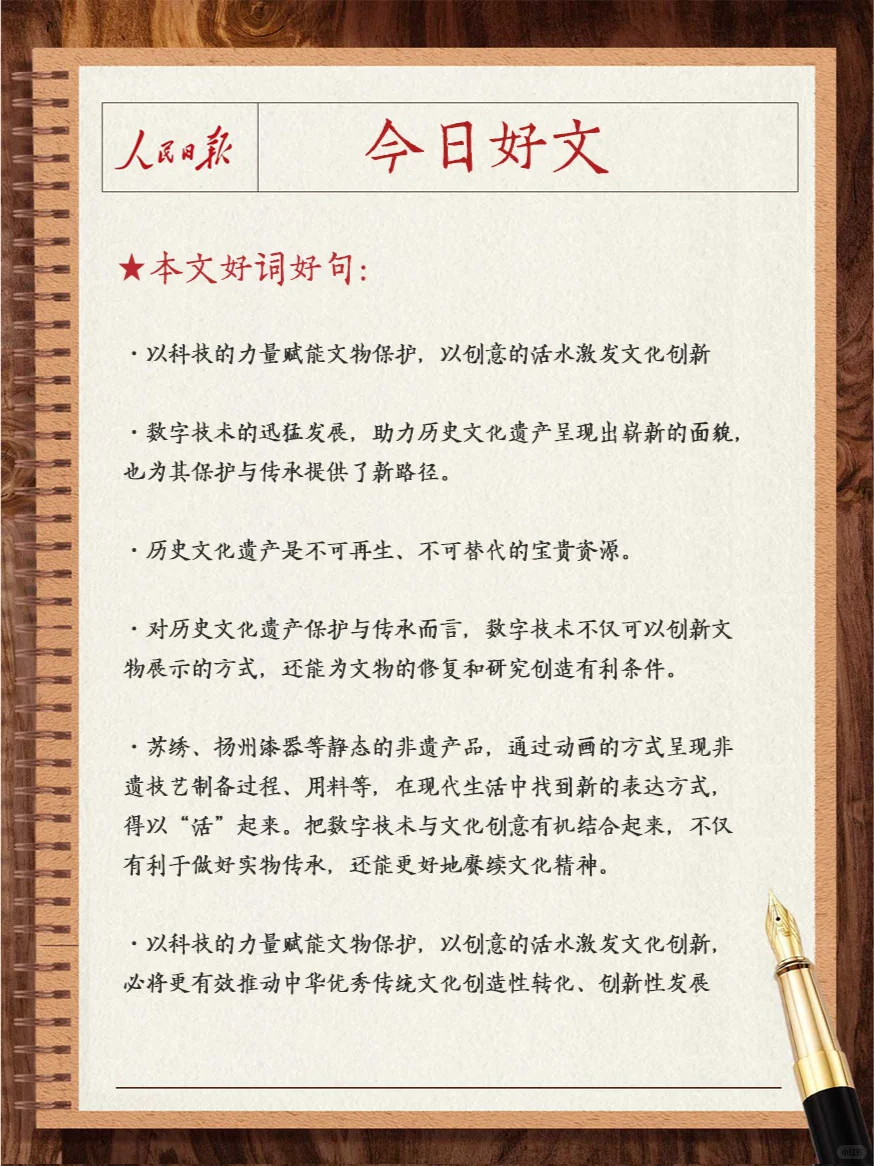 人民日报
今日好文
★本文好词好句：
·以科技的力量赋能文物保护，以创意的活水激发文化创新
·数字技术的迅猛发展，助力历史文化遗产呈现出崭新的面貌，
也为其保护与传承提供了新路径。
·历史文化遗产是不可再生、不可替代的宝贵资源。
·对历史文化遗产保护与传承而言，数字技术不仅可以创新文
物展示的方式，还能为文物的修复和研究创造有利条件。
·苏绣、扬州漆器等静态的非遗产品，通过动画的方式呈现非
遗技艺制备过程、用料等，在现代生活中找到新的表达方式，
得以“活”起来。把数字技术与文化创意有机结合起来，不仅
有利于做好实物传承，还能更好地赓续文化精神。
·以科技的力量赋能文物保护，以创意的活水激发文化创新，
必将更有效推动中华优秀传统文化创造性转化、创新性发展
小红书